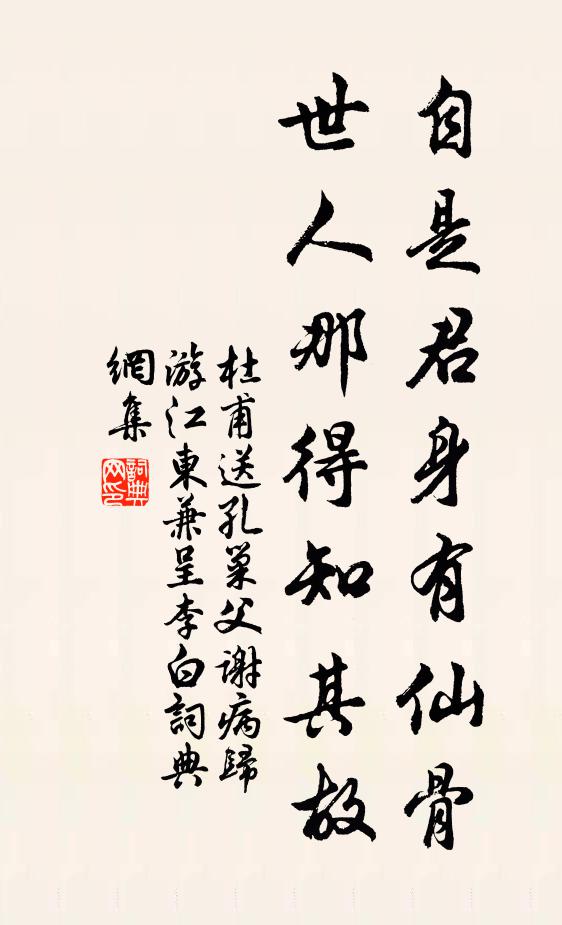 自是君身有仙骨
世人那得知其故
杜甫送孔巢父謝病歸
游江東兼呈李白詞典
網集
詞典
网印